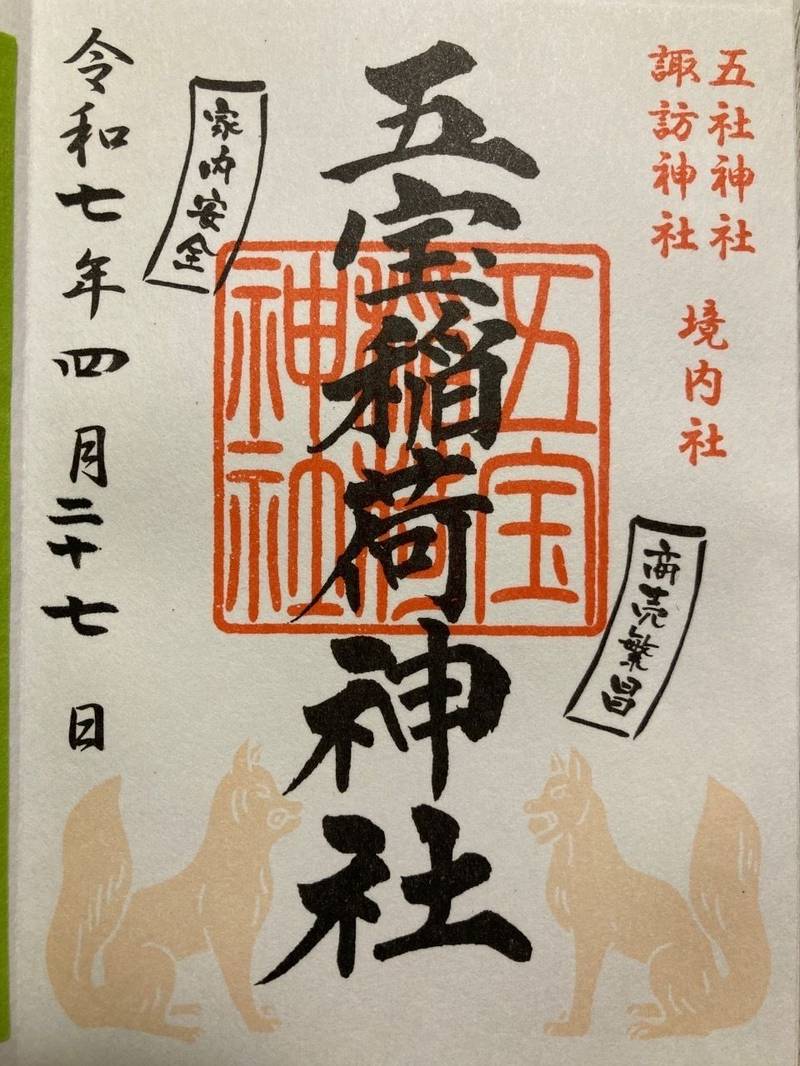 五社神社
諏訪神社
境内社
商売繁昌
五宝稲荷神社
五宝
稲荷
神社
家内安全
令和七年四月二十七日